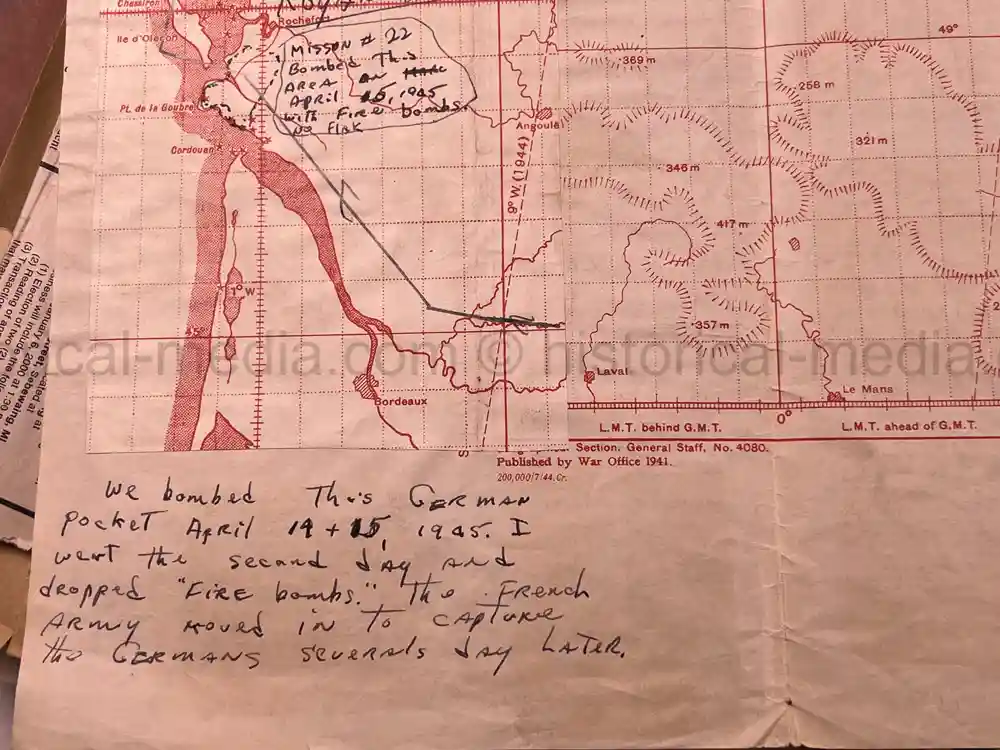 Chassiron
Rochefort
Ile d'Oleron
Misson # 22
Bombed This
AREA ON
April 15, 1945
with Fire bombs.
No Flak
Pt. de la Coubre
Cordouan
1° W
45°
Bordeaux
Angoul
9° W. (1944)
49°
369 m
258 m
321 m
346 m
417 m
357 m
Laval
Le Mans
0°
L.M.T. behind G.M.T.
L.M.T. ahead of G.M.T.
Section, General Staff, No. 4080.
Published by War Office 1941.
200,000/7/44. Cr.
cal-media.com © historical-media
We bombed This GERMAN
pocket April 14 + 15, 1945. I
went the second day and
dropped "FIRE bombs." The French
ARMY moved in To CAPTURE
the GERMANS severals day LATER.
January 6, 2000 at 1:30
Sebewaing, MI
(1) Election of two
(2) Reading of
(3) Transaction